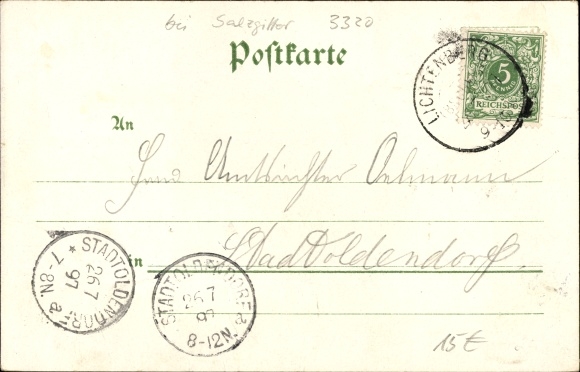 bei Salzgitter 3320
Postkarte
LICHTENBERG
5
PFENNIG
REICHSPOST
An
Herrn Amtsrichter Oelmann
in Stadtoldendorf.
* STADTOLDENDORF a
26 7
97
7-8N.
STADTOLDENDORF a
26 7
97
8-12N.
15€